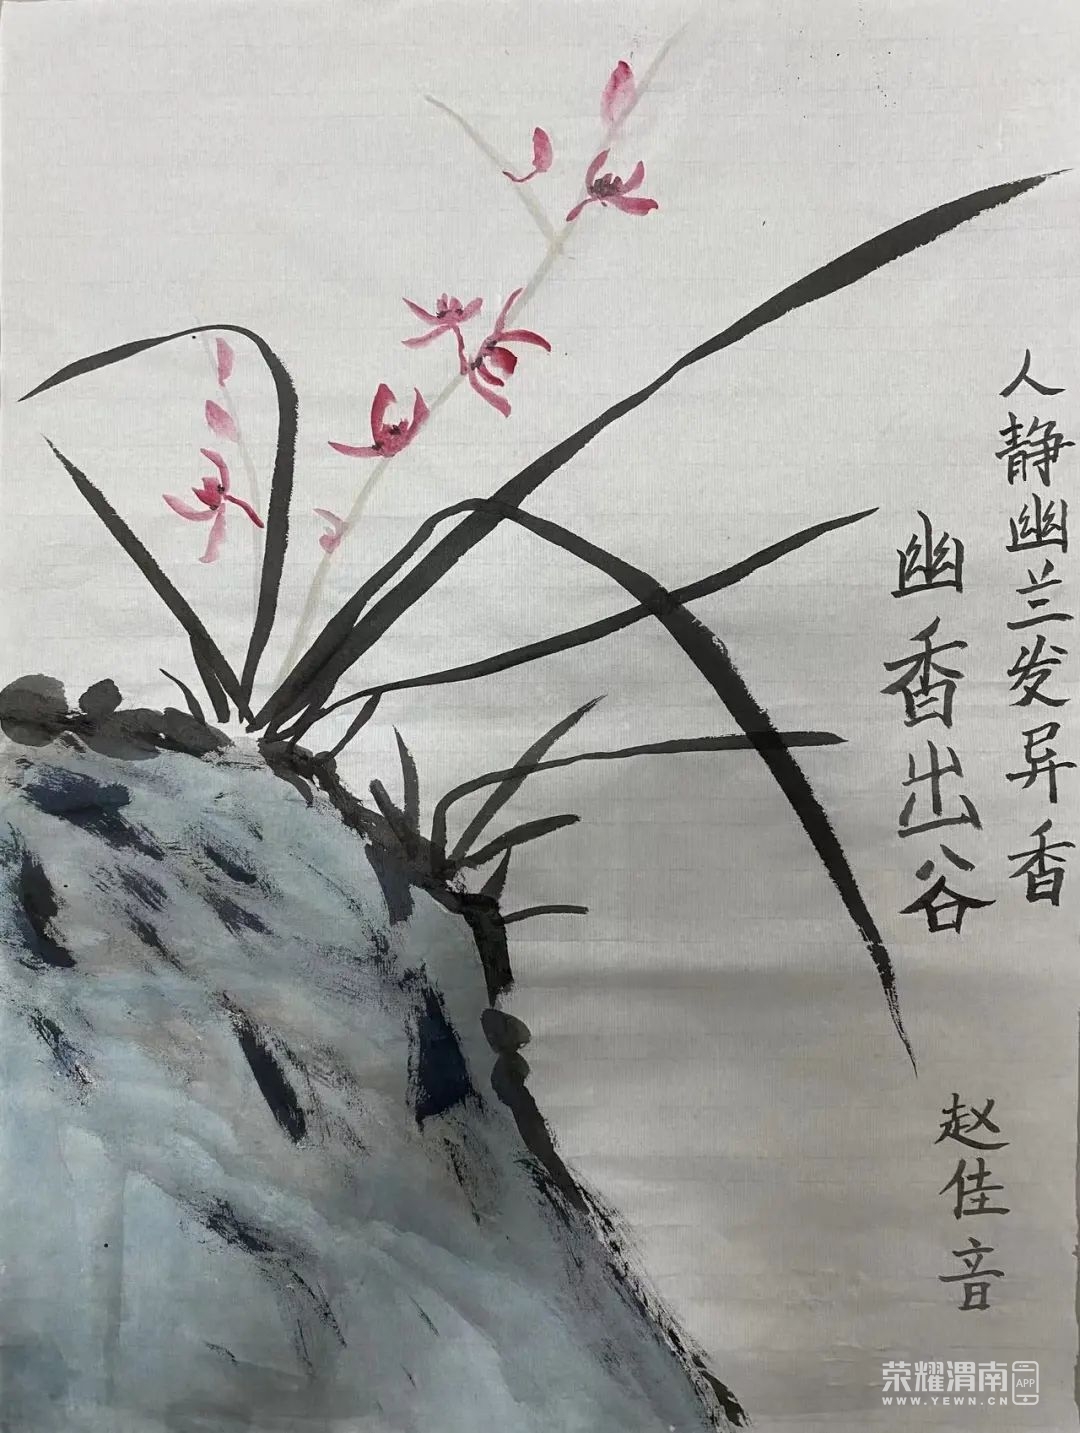 人静幽兰发异香
幽香出谷
赵佳音
荣耀渭南
APP
WWW.YEWN.CN